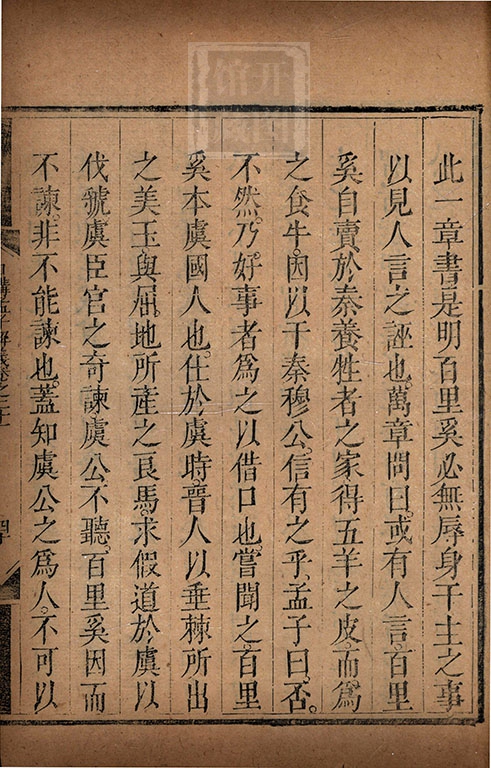 此一章書是明百里奚必無辱身干主之事
以見人言之誣也萬章問曰或有人言百里
奚自賣於秦養牲者之家得五羊之皮而爲
之食牛因以干秦穆公信有之乎孟子曰否
不然乃好事者爲之以借口也嘗聞之百里
奚本虞國人也仕於虞時晉人以垂棘所出
之美玉與屈地所產之良馬求假道於虞以
伐虢虞臣宮之奇諫虞公不聽百里奚因而
不諫非不能諫也蓋知虞公之爲人不可以